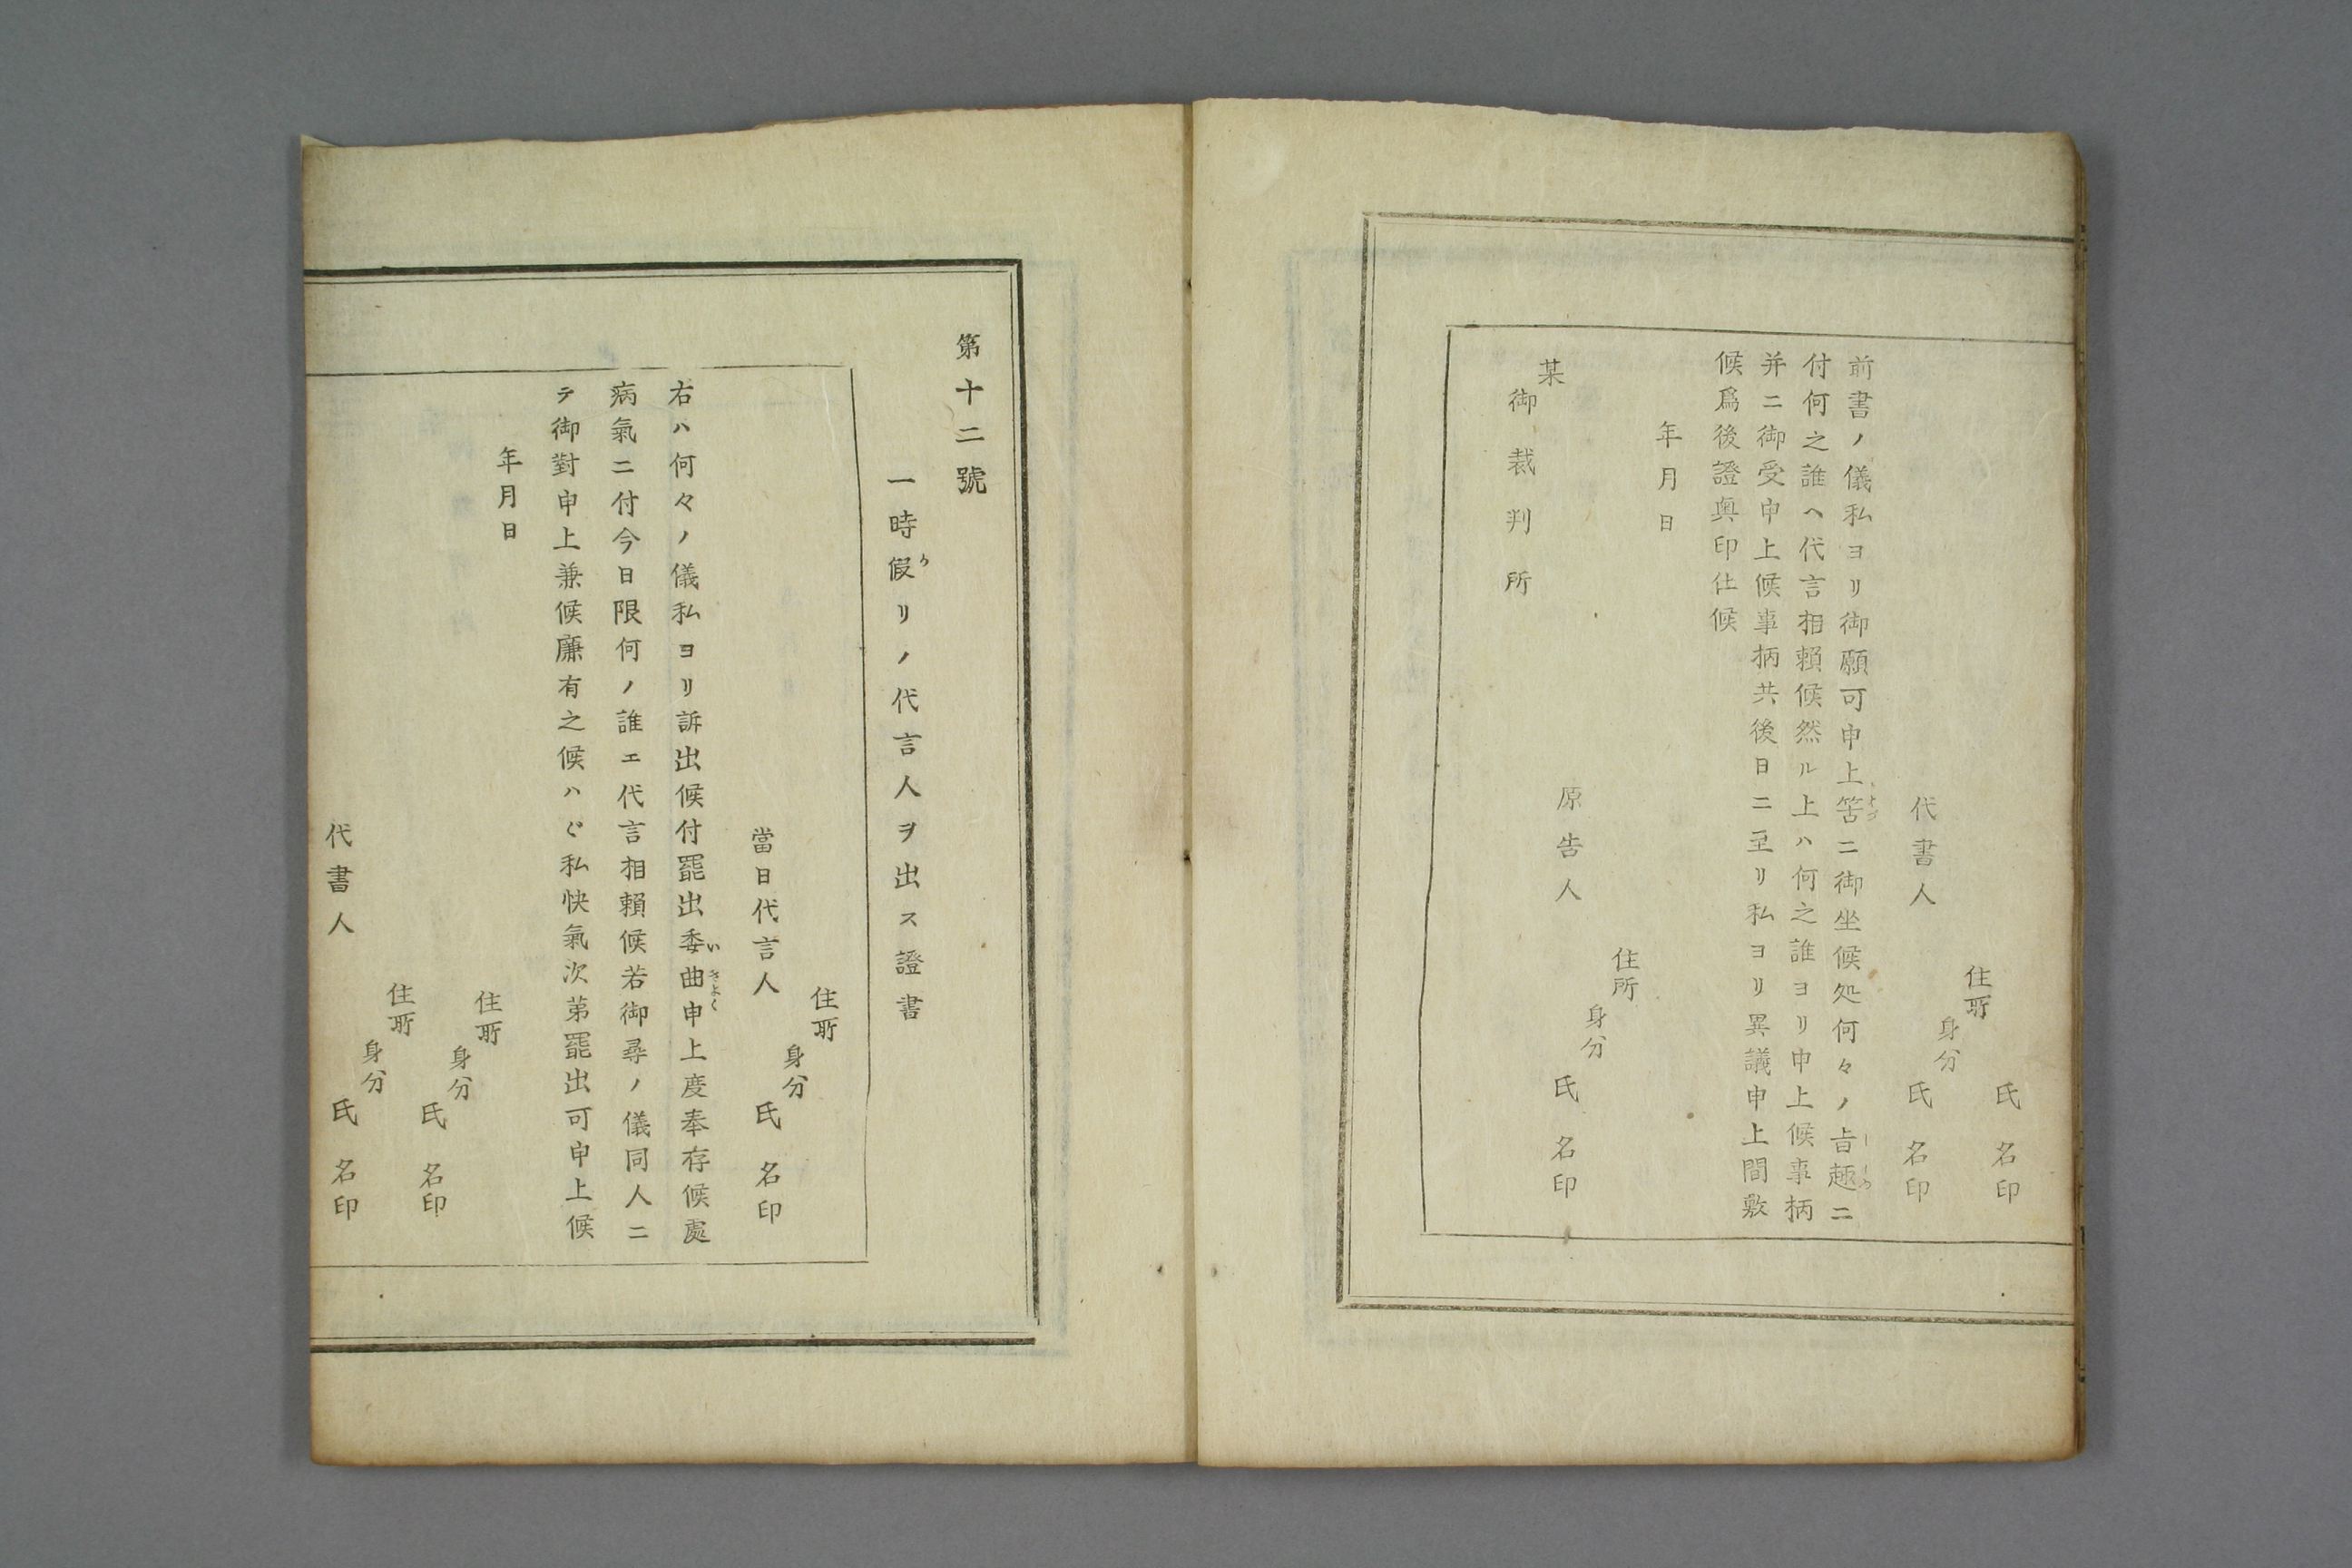 氏名印
住所
身分
代書人
氏名印
前書ノ儀私ヨリ御願可申上筈ニ御坐候処何々ノ旨趣ニ
付何之誰ヘ代言相頼候然ル上ハ何之誰ヨリ申上候事柄
并ニ御受申上候事柄共後日ニ至リ私ヨリ異議申上間敷
候爲後證輿印仕候
年月日
住所
身分
原告人
氏名印
某
御裁判所
第十二號
一時假リノ代言人ヲ出ス證書
住所
身分
當日代言人
氏名印
右ハ何々ノ儀私ヨリ訴出候付罷出委曲申上度奉存候處
病氣ニ付今日限何ノ誰エ代言相賴候若御尋ノ儀同人ニ
テ御對申上兼候廉有之候ハヾ私快氣次第罷出可申上候
年月日
住所
身分
氏名印
住所
身分
代書人
氏名印